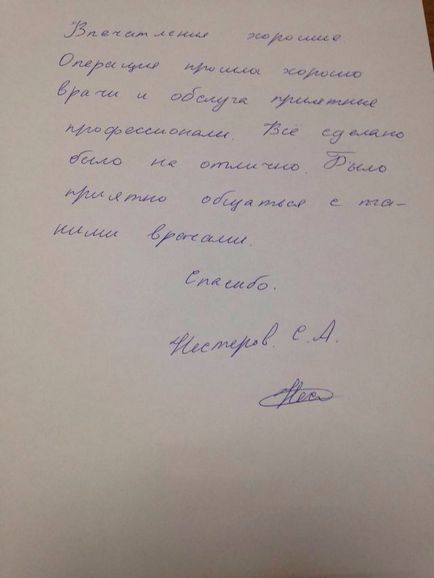 "Впечатления хорошие
Операция прошла хорошо
врачи и обслуга приятные
профессионали. Всё сделано
было на отлично. Было
приятно общаться с та-
кими врачами.
Спасибо.
Нестеров. С. А.